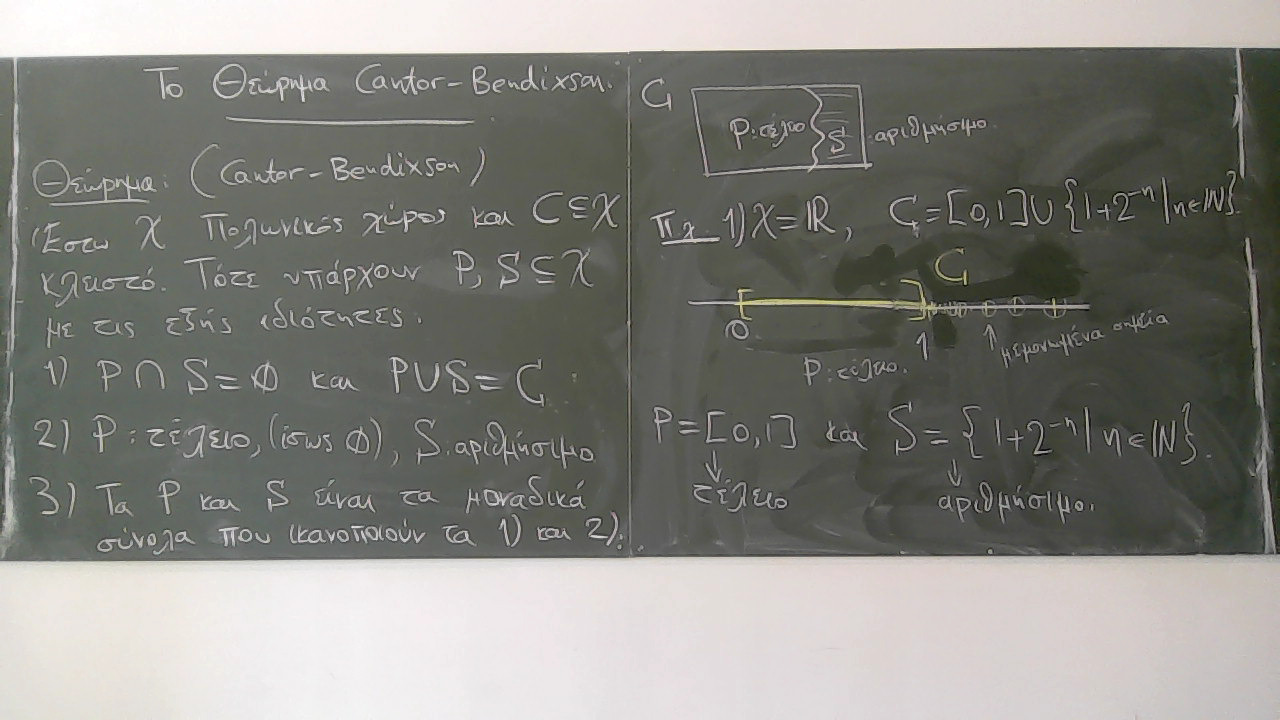 Το Θεώρημα Cantor-Bendixson.
Θεώρημα: (Cantor-Bendixson)
Έστω X Πολωνικός χώρος και C⊆X
κλειστό. Τότε υπάρχουν P, S⊆X
με τις εξής ιδιότητες.
1) P∩S=∅ και P∪S=C
2) P: τέλειο, (ίσως ∅), S: αριθμήσιμο
3) Τα P και S είναι τα μοναδικά
σύνολα που ικανοποιούν τα 1) και 2).
C
P: τέλειο S αριθμήσιμο
π.χ. 1) X=ℝ, C=[0,1]∪{1+2⁻ⁿ | n∈ℕ}.
C
0 1 μεμονωμένα σημεία
P: τέλειο.
P=[0,1] και S={1+2⁻ⁿ | n∈ℕ}.
↓ ↓
τέλειο αριθμήσιμο.